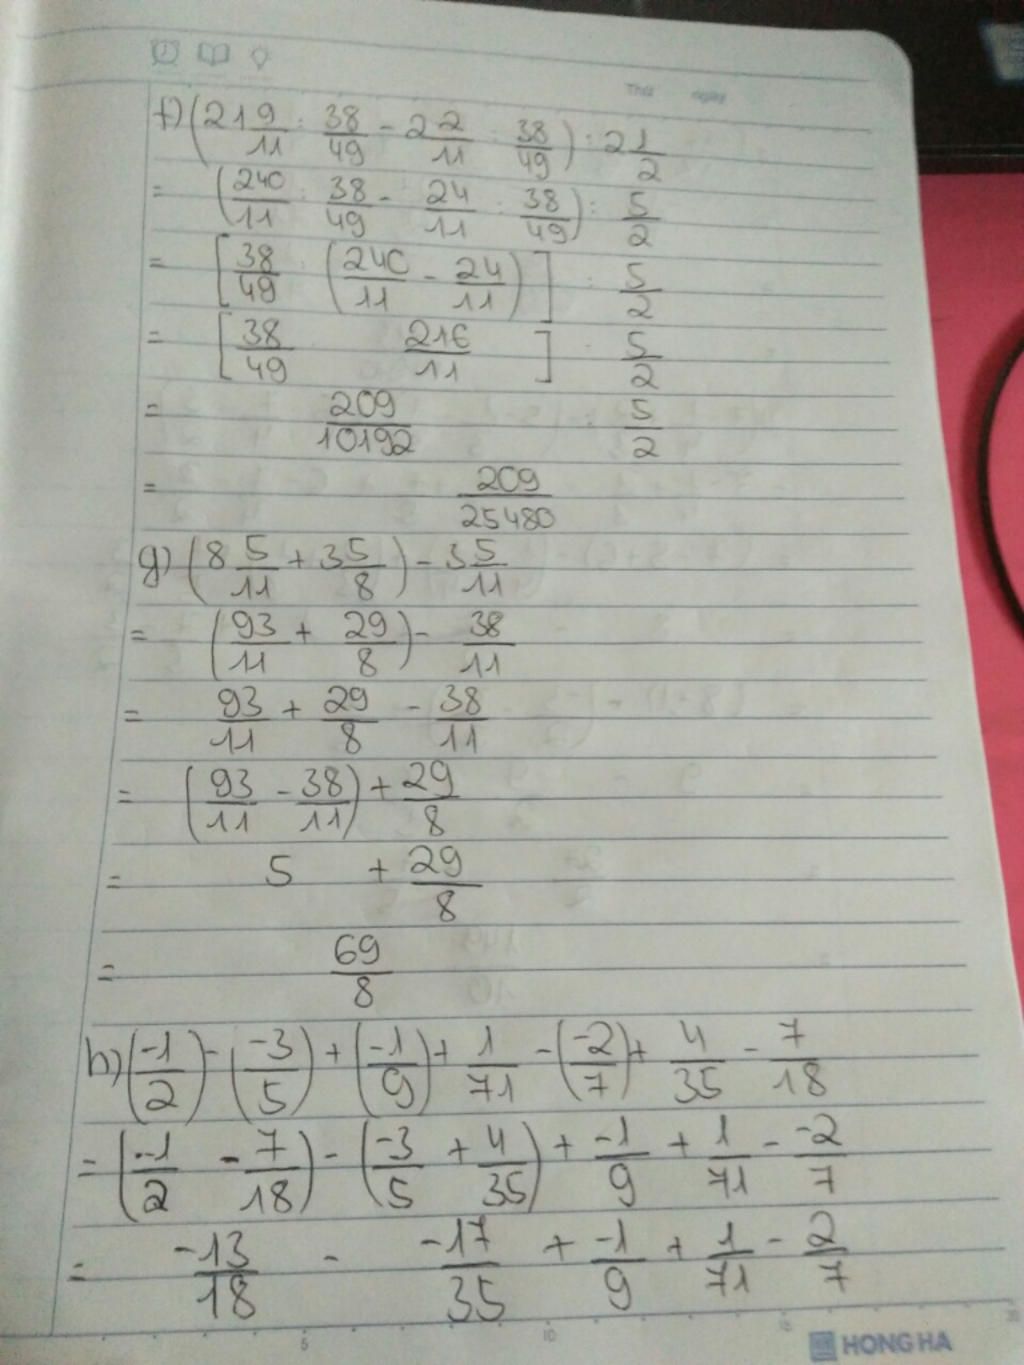 Thứ ngày
f) (21 9/11 : 38/49 - 2 2/11 : 38/49) : 2 1/2
= (240/11 : 38/49 - 24/11 : 38/49) : 5/2
= [38/49 (240/11 - 24/11)] : 5/2
= [38/49 216/11] : 5/2
= 209/10192 5/2
= 209/25480
g) (8 5/11 + 3 5/8) - 3 5/11
= (93/11 + 29/8) - 38/11
= 93/11 + 29/8 - 38/11
= (93/11 - 38/11) + 29/8
= 5 + 29/8
= 69/8
h) (-1/2) - (-3/5) + (-1/9) + 1/71 - (-2/7) + 4/35 - 7/18
= (-1/2 - 7/18) - (-3/5 + 4/35) + -1/9 + 1/71 - -2/7
= -13/18 - -17/35 + -1/9 + 1/71 - 2/7
5 10 15 20
HONG HA